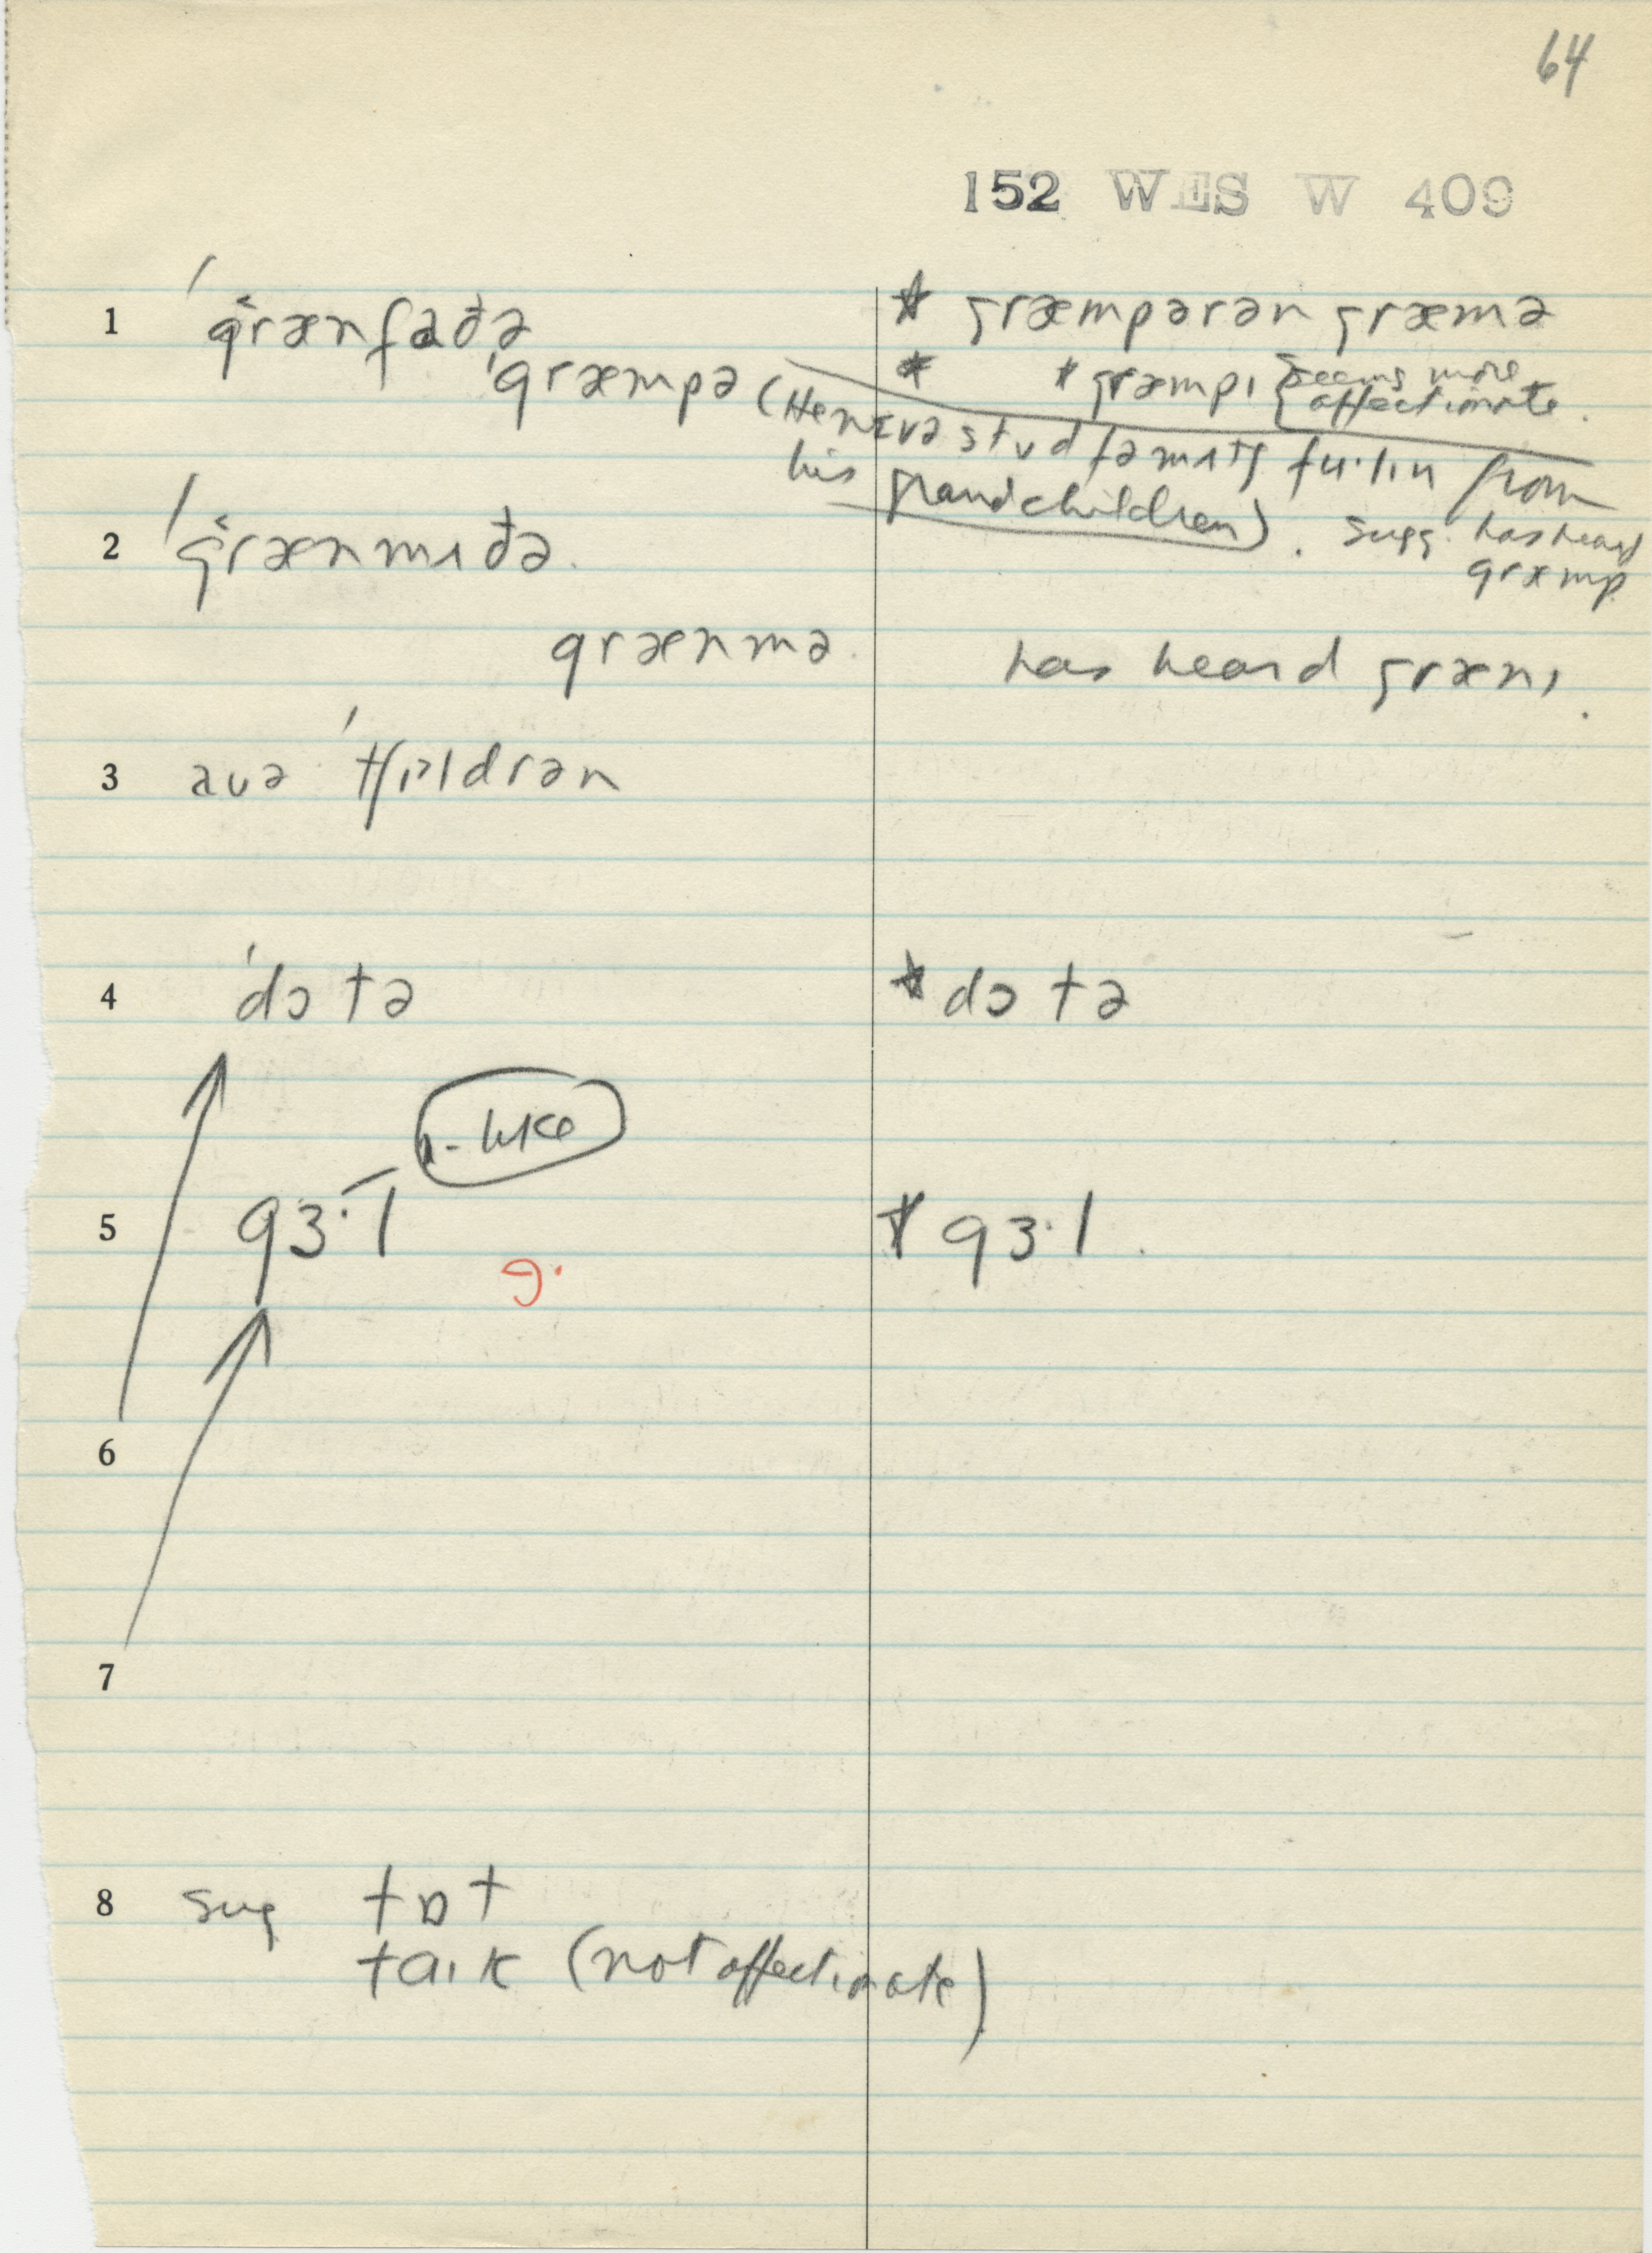 64
152 WES W 409
1 ˈgrænfaðə * græmpərən græmə
ˈgræmpə * * græmpɪ {seems more affectionate.
(He nɛvə stʊd fəmɪlɪ fɪ·lɪŋ from
his grandchildren). sugg. has heard
græmp
2 ˈgrænmʌðə.
grænmə. has heard grænɪ.
3 aʊə ˈtʃɪldrən
4 ˈdɔtə * dɔtə
ɪ-like
5 gɜ·l * gɜ·l.
ɘ·
6
7
8 sug tɒt
taɪk (not affectionate)